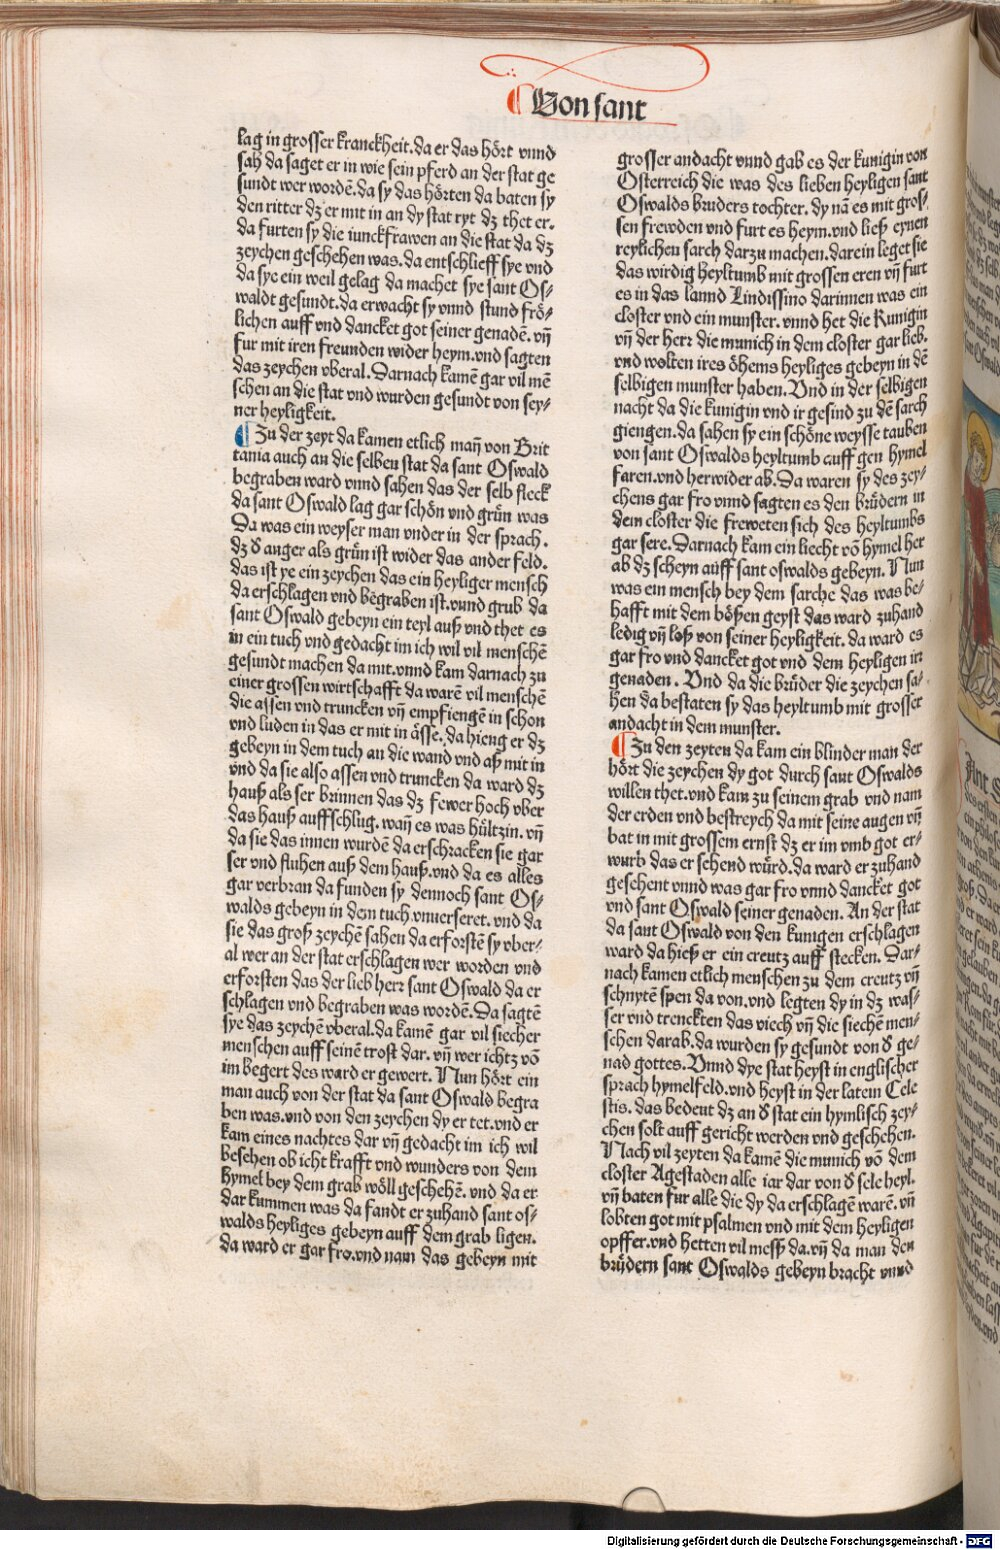 Von sant
lag in grosser kranckheit.da er das hört vnnd
sah da saget er in wie sein pferd an der stat ge
sundt wer wordē.da sy das hörten da baten sy
den ritter dz er mit in an dy stat ryt dz thet er.
da furten sy die iunckfrawen an die stat da dz
zeychen geschehen was.da entschlieff sye vnd
da sye ein weil gelag da machet sye sant Os⸗
waldt gesundt.da erwacht sy vnnd stund frö⸗
lichen auff vnd dancket got seiner genadē.vn̄
fur mit iren freunden wider heym.vnd sagten
das zeychen vberal.Darnach kamē gar vil mē
schen an die stat vnd wurden gesundt von sey⸗
ner heyligkeit.
Zu der zeyt da kamen etlich man̄ von Brit
tania auch an die selben stat da sant Oswald
begraben ward vnnd sahen das der selb fleck
da sant Oswald lag gar schön vnd grün was
Da was ein weyser man vnder in der sprach.
dz d̕ anger als grün ist wider das ander feld.
das ist ye ein zeychen das ein heyliger mensch
da erschlagen vnd begraben ist.vnnd grub da
sant Oswald gebeyn ein teyl auß vnd thet es
in ein tuch vnd gedacht im ich wil vil menschē
gesundt machen da mit.vnnd kam darnach zu
einer grossen wirtschafft da warē vil menschē
die assen vnd truncken vn̄ empfiengē in schon
vnd luden in das er mit in ässe.da hieng er dz
gebeyn in dem tuch an die wand vnd aß mit in
vnd da sie also assen vnd truncken da ward dz
hauß als ser brinnen das dz fewer hoch vber
das hauß auffschlug.wan̄ es was hültzin.vn̄
da sie das innen wurdē da erschracken sie gar
ser vnd fluhen auß dem hauß.vnd da es alles
gar verbran da funden sy dennoch sant Os⸗
walds gebeyn in dem tuch vnuerseret.vnd da
sie das groß zeychē sahen da erforstē sy vber⸗
al wer an der stat erschlagen wer worden vnd
erforsten das der lieb herr sant Oswald da er
schlagen vnd begraben was wordē.Da sagtē
sye das zeychē vberal.da kamē gar vil siecher
menschen auff seinē trost dar.vn̄ wer ichtz vō
im begert des ward er gewert. Nun hört ein
man auch von der stat da sant Oswald begra
ben was.vnd von den zeychen dy er tet.vnd er
kam eines nachtes dar vn̄ gedacht im ich wil
besehen ob icht krafft vnd wunders von dem
hymel bey dem grab wöll geschehē.vnd da er
dar kummen was da fandt er zuhand sant os⸗
walds heyliges gebeyn auff dem grab ligen.
da ward er gar fro.vnd nam das gebeyn mit
grosser andacht vnnd gab es der kunigin von
Osterreich die was des lieben heyligen sant
Oswalds bruders tochter. dy nā es mit gros⸗
sen frewden vnd furt es heym.vnd ließ eynen
reylichen sarch darzu machen.darein leget sie
das wirdig heyltumb mit grossen eren vn̄ furt
es in das lannd Lindissino darinnen was ein
closter vnd ein munster.vnnd het die Kunigin
vn̄ der herr die munich in dem closter gar lieb.
vnd wolten ires öhems heyliges gebeyn in dē
selbigen munster haben.Vnd in der selbigen
nacht da die kunigin vnd ir gesind zu dē sarch
giengen.da sahen sy ein schöne weysse tauben
von sant Oswalds heyltumb auff gen hymel
faren.vnd herwider ab.Da waren sy des zey⸗
chens gar fro vnnd sagten es den brüdern in
dem closter die freweten sich des heyltumbs
gar sere.Darnach kam ein liecht vō hymel her
ab dz scheyn auff sant oswalds gebeyn. Nun
was ein mensch bey dem sarche das was be⸗
hafft mit dem bößen geyst das ward zuhand
ledig vn̄ loß von seiner heyligkeit.da ward es
gar fro vnd dancket got vnd dem heyligen irr
genaden. Vnd da die brüder die zeychen sa⸗
hen da bestaten sy das heyltumb mit grosser
andacht in dem munster.
Zu den zeyten da kam ein blinder man der
hört die zeychen dy got durch sant Oswalds
willen thet.vnd kam zu seinem grab vnd nam
der erden vnd bestreych da mit seine augen vn̄
bat in mit grossem ernst dz er im vmb got er⸗
wurb das er sehend würd.da ward er zuhand
gesehent vnnd was gar fro vnnd dancket got
vnd sant Oswald seiner genaden. An der stat
da sant Oswald von den kunigen erschlagen
ward da hieß er ein creutz auff stecken. Dar⸗
nach kamen etlich menschen zu dem creutz vn̄
schnytē spen da von.vnd legten dy in dz was⸗
ser vnd trenckten das viech vn̄ die siechē men⸗
schen darab.da wurden sy gesund von d̕ ge⸗
nad gottes.Vnnd dye stat heyst in englischer
sprach hymelfeld.vnd heyst in der latein Cele
stis.das bedeut dz an d̕ stat ein hymlisch zey⸗
chen solt auff gericht werden vnd geschehen.
Nach vil zeyten da kamē die munich vō dem
closter Agestaden alle iar dar von d̕ sele heyl.
vn̄ baten fur alle die dy da erschlagē warē.vn̄
lobten got mit psalmen vnd mit dem heyligen
opffer.vnd hetten vil mesß da.vn̄ da man den
brüdern sant Oswalds gebeyn bracht vnnd
Digitalisierung gefördert durch die Deutsche Forschungsgemeinschaft - DFG